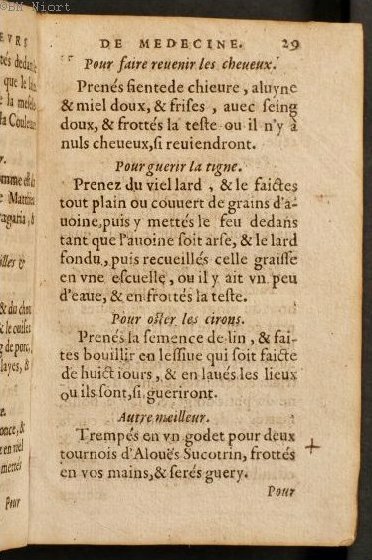 ©BM Niort
DE MEDECINE. 29
Pour faire reuenir les cheueux.
Prenés fientede chieure, aluyne
& miel doux, & frises, auec seing
doux, & frottés la teste ou il n'y à
nuls cheueux, si reuiendront.
Pour guerir la tigne.
Prenez du viel lard, & le faictes
tout plain ou couuert de grains d'a-
uoine, puis y mettés le feu dedans
tant que l'auoine soit arse, & le lard
fondu, puis recueillés celle graisse
en vne escuelle, ou il y ait vn peu
d'eaue, & en frottés la teste.
Pour oster les cirons.
Prenés la semence de lin, & fai-
tes bouillir en lessiue qui soit faicte
de huict iours, & en laués les lieux
ou ils sont, si gueriront.
Autre meilleur.
Trempés en vn godet pour deux
tournois d'Alouës Sucotrin, frottés
en vos mains, & serés guery.
Pour
EVRS
que le
la Couleur
Pour